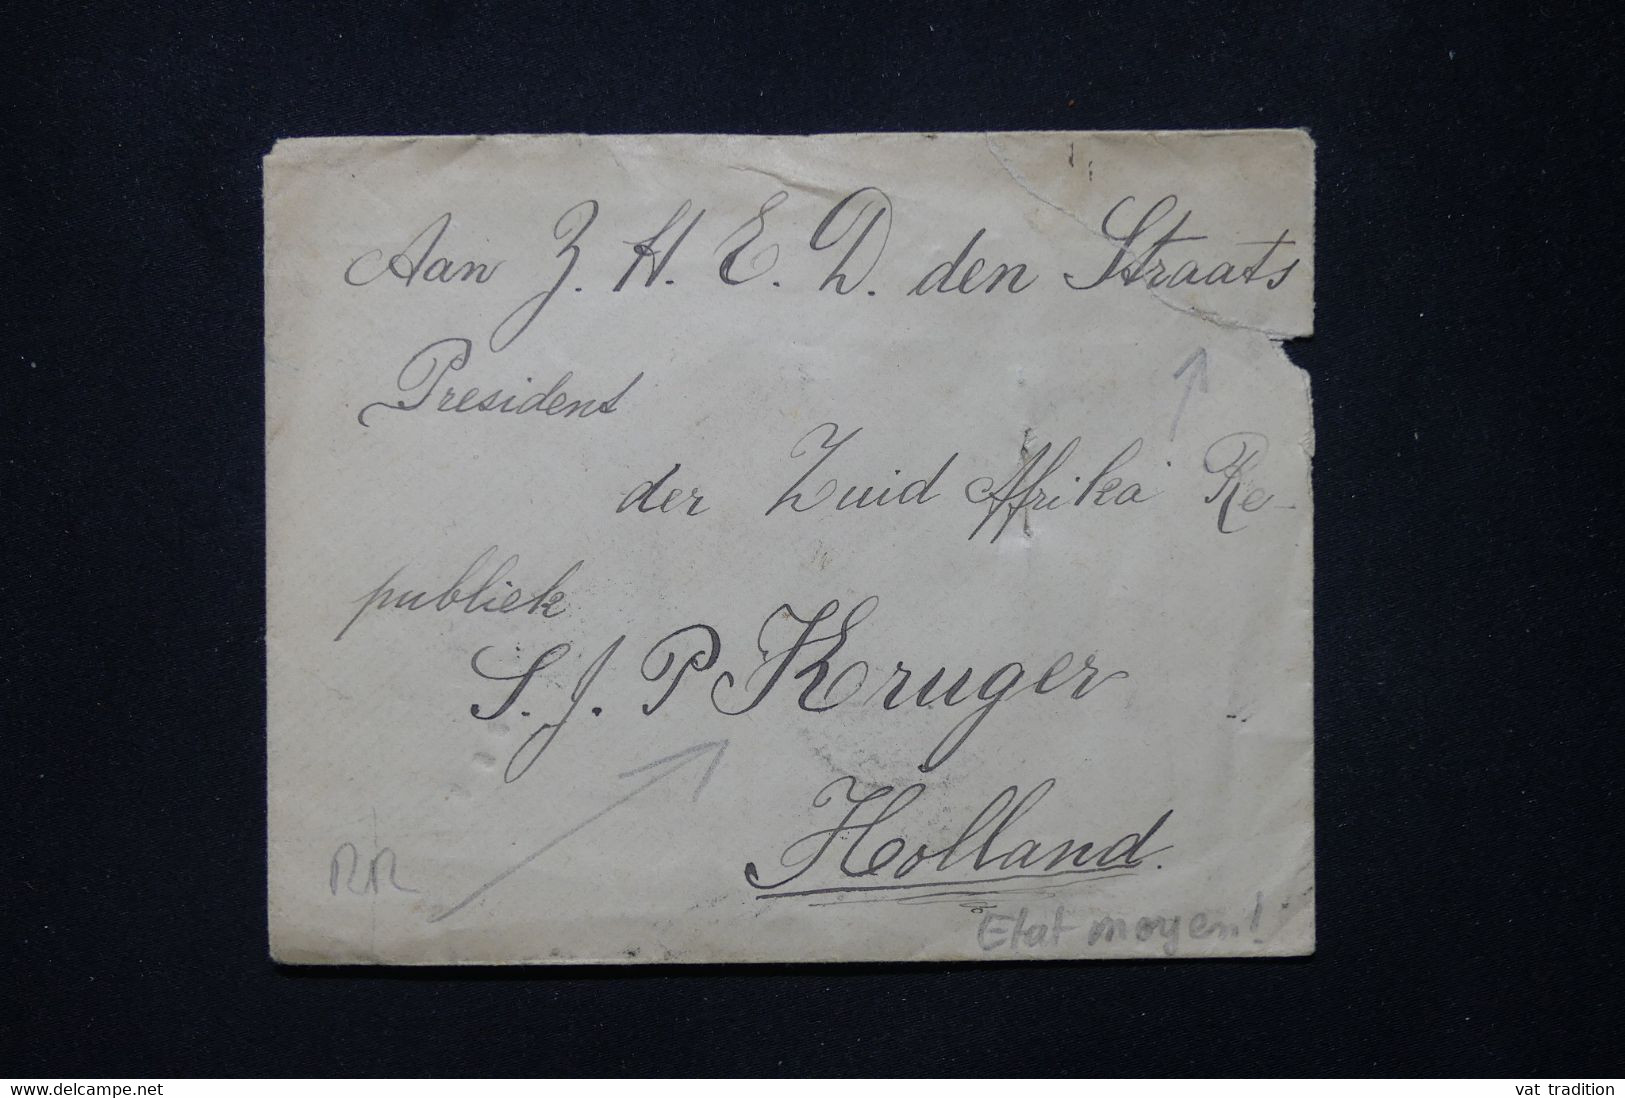 Aan Z. H. E. D. den Straats
President
der Zuid Afrika Re-
publiek
S. J. P Kruger
Holland.
RR
Etat moyen!
www.delcampe.net
vat_tradition